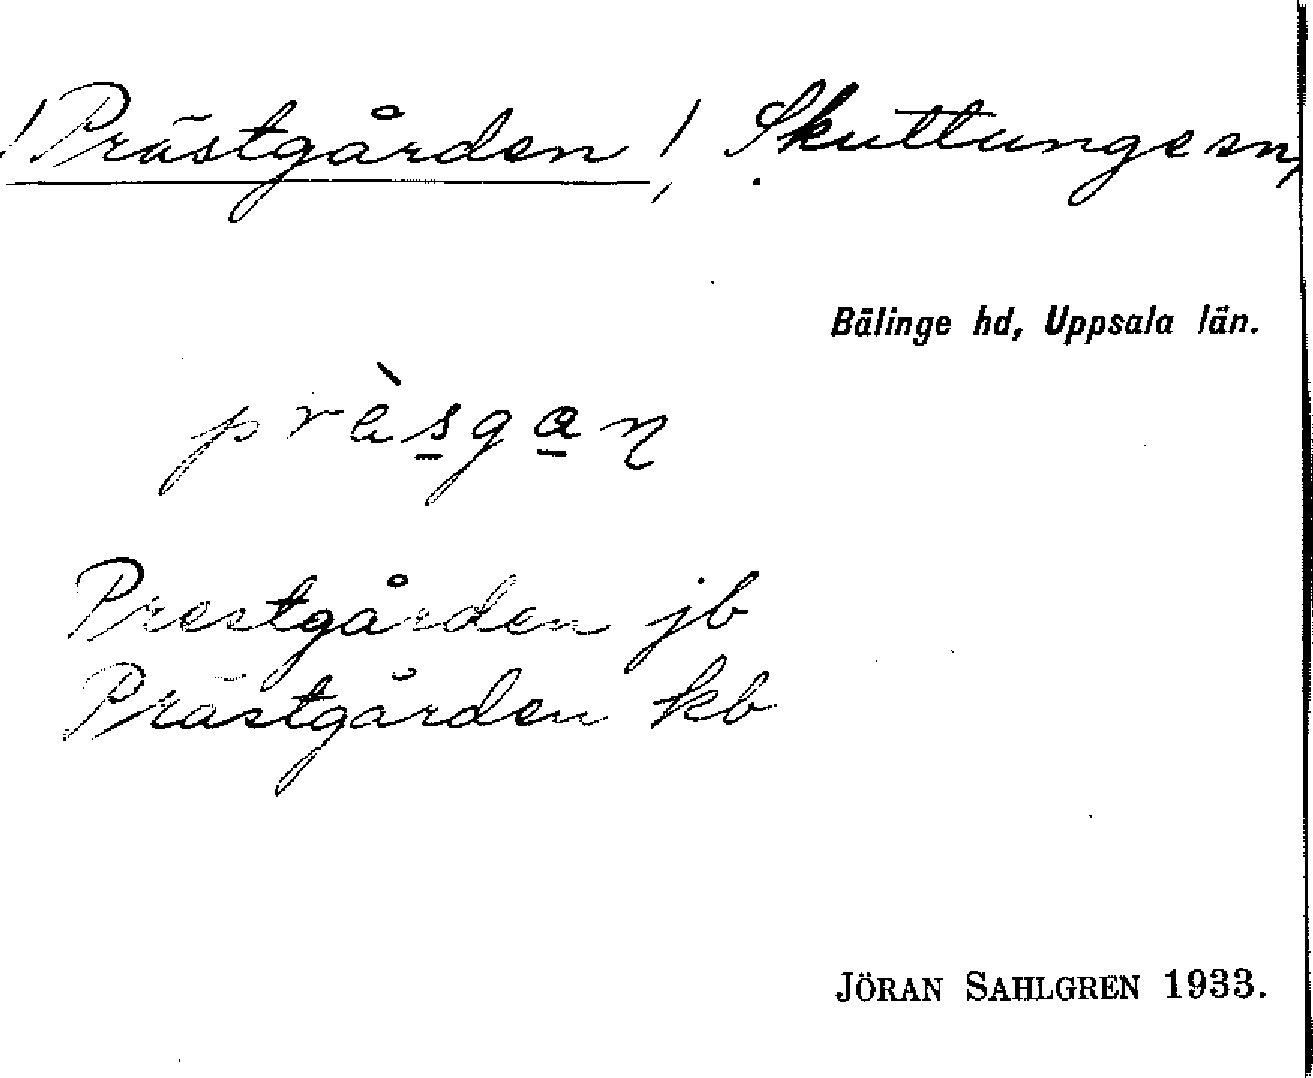 ! Prästgården! Skuttunge sn,
Bälinge hd, Uppsala län.
Prestgården jb
Prästgården kb
JÖRAN SAHLGREN 1933.